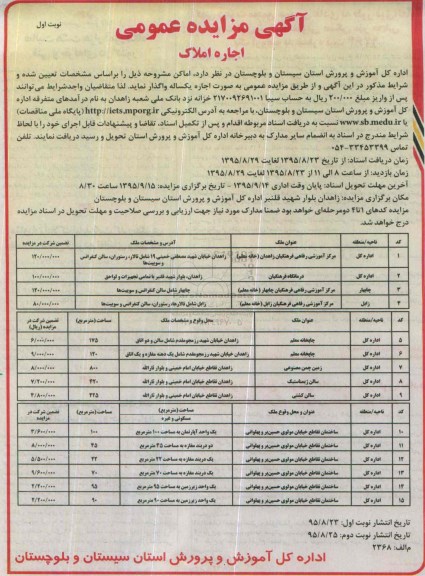 نوبت اول
آگهی مزایده عمومی
اجاره املاک
اداره کل آموزش و پرورش استان سیستان و بلوچستان در نظر دارد، اماکن مشروحه ذیل را براساس مشخصات تعیین شده و
شرایط مذکور در این آگهی و از طریق مزایده عمومی به صورت اجاره یکساله واگذار نماید. لذا متقاضیان واجدشرایط می توانند
پس از واریز مبلغ ۲۰۰/۰۰۰ ریال به حساب سیبا ۲۱۷۰۰۹۴۶۹۱۰۰۱ خزانه نزد بانک ملی شعبه زاهدان به نام درآمدهای متفرقه اداره
کل آموزش و پرورش استان سیستان و بلوچستان، با مراجعه به آدرس الکترونیکی http://iets.mporg.ir (پایگاه ملی مناقصات)
یا www.sb.medu.ir نسبت به دریافت اسناد مربوطه اقدام و پس از تکمیل اسناد، تقاضا و پیشنهادات قابل اجرای خود را با لحاظ
شرایط مندرج در اسناد به انضمام سایر مدارک به دبیرخانه اداره کل آموزش و پرورش استان تحویل و رسید دریافت نمایند. تلفن
تماس ۳۳۴۵۳۳۹۹-۰۵۴
زمان دریافت اسناد: از تاریخ ۱۳۹۵/۸/۲۳ لغایت ۱۳۹۵/۸/۲۹
زمان بازدید: از ساعت ۸ الی ۱۱ از تاریخ ۱۳۹۵/۸/۲۳ لغایت ۱۳۹۵/۸/۲۹
آخرین مهلت تحویل اسناد: پایان وقت اداری ۱۳۹۵/۹/۱۴ - تاریخ برگزاری مزایده: ۱۳۹۵/۹/۱۵ ساعت ۸/۳۰
مکان برگزاری مزایده: زاهدان بلوار شهید قلنبر اداره کل آموزش و پرورش استان سیستان و بلوچستان
مزایده کدهای ۱تا۴ دومرحله‌ای خواهد بود ضمنا مدارک مورد نیاز جهت ارزیابی و بررسی صلاحیت و مهلت تحویل در اسناد مزایده
درج خواهد شد.
کد ناحیه/منطقه عنوان ملک آدرس و مشخصات ملک تضمین شرکت در مزایده
۱ اداره کل مرکز آموزشی رفاهی فرهنگیان زاهدان (خانه معلم) زاهدان خیابان شهید مصطفی خمینی ۱۹ شامل تالار، رستوران، سالن کنفرانس و سوییت‌ها ۱۲۰/۰۰۰/۰۰۰
۲ اداره کل درمانگاه فرهنگیان زاهدان، بلوار شهید قلنبر با تمامی تجهیزات و لواحق ۱۰۰/۰۰۰/۰۰۰
۳ چابهار مرکز آموزشی رفاهی فرهنگیان چابهار (خانه معلم) چابهار شامل سالن کنفرانس و سوییت‌ها ۱۴۰/۰۰۰/۰۰۰
۴ زابل مرکز آموزشی رفاهی فرهنگیان زابل (خانه معلم) زابل شامل تالارها، رستوران، سالن کنفرانس و سوییت‌ها ۸۰/۰۰۰/۰۰۰
کد ناحیه/منطقه عنوان ملک محل وقوع و مشخصات ملک مساحت (مترمربع) تضمین شرکت در مزایده (ریال)
۵ اداره کل چاپخانه معلم زاهدان خیابان شهید رزمجومقدم شامل سالن و دو اتاق ۱۷۵ ۶/۰۰۰/۰۰۰
۶ اداره کل چاپخانه معلم زاهدان خیابان شهید رزمجومقدم شامل یک دهنه مغازه و یک اتاق ۱۲۰ ۹/۰۰۰/۰۰۰
۷ اداره کل زمین چمن مصنوعی زاهدان تقاطع خیابان امام خمینی و بلوار ثارالله ۸۰۰ ۸/۰۰۰/۰۰۰
۸ اداره کل سالن ژیمناستیک زاهدان تقاطع خیابان امام خمینی و بلوار ثارالله ۴۲۰ ۷/۲۰۰/۰۰۰
۹ اداره کل سالن کشتی زاهدان تقاطع خیابان امام خمینی و بلوار ثارالله ۲۲۵ ۴/۸۰۰/۰۰۰
کد ناحیه/منطقه عنوان و محل وقوع ملک مساحت (مترمربع) مسکونی و غیره مساحت (مترمربع) تضمین شرکت در مزایده
۱۰ اداره کل ساختمان تقاطع خیابان مولوی حسین‌بر و پهلوانی یک واحد آپارتمان به مساحت ۱۰۰ ۱۰۰ ۳/۶۰۰/۰۰۰
۱۱ اداره کل ساختمان تقاطع خیابان مولوی حسین‌بر و پهلوانی دو دربند مغازه به مساحت ۴۵ مترمربع ۴۵ ۸/۰۰۰/۰۰۰
۱۲ اداره کل ساختمان تقاطع خیابان مولوی حسین‌بر و پهلوانی یک دربند مغازه به مساحت ۲۲ مترمربع ۲۲ ۵/۵۰۰/۰۰۰
۱۳ اداره کل ساختمان تقاطع خیابان مولوی حسین‌بر و پهلوانی یک دربند مغازه به مساحت ۷۰ مترمربع ۷۰ ۹/۶۰۰/۰۰۰
۱۴ اداره کل ساختمان تقاطع خیابان مولوی حسین‌بر و پهلوانی یک واحد زیرزمین به مساحت ۹۵ مترمربع ۹۵ ۲/۴۰۰/۰۰۰
۱۵ اداره کل ساختمان تقاطع خیابان مولوی حسین‌بر و پهلوانی یک واحد زیرزمین به مساحت ۹۰ مترمربع ۹۰ ۲/۲۰۰/۰۰۰
تاریخ انتشار نوبت اول: ۹۵/۸/۲۳
تاریخ انتشار نوبت دوم: ۹۵/۸/۲۵
م‌الف: ۲۳۶۸
اداره کل آموزش و پرورش استان سیستان و بلوچستان